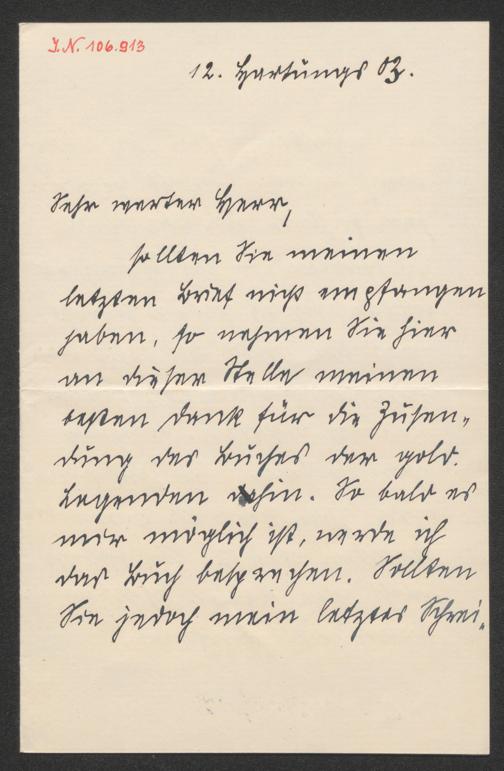 I.N. 106.913
12. Hartungs 03.
Sehr werter Herr,
sollten Sie meinen
letzten Brief nicht empfangen
haben, so nehmen Sie hier
an dieser Stelle meinen
besten Dank für die Zusen-
dung des Buches der gold.
Legenden dahin. So bald es
mir möglich ist, werde ich
das Buch besprechen. Sollten
Sie jedoch mein letztes Schrei-